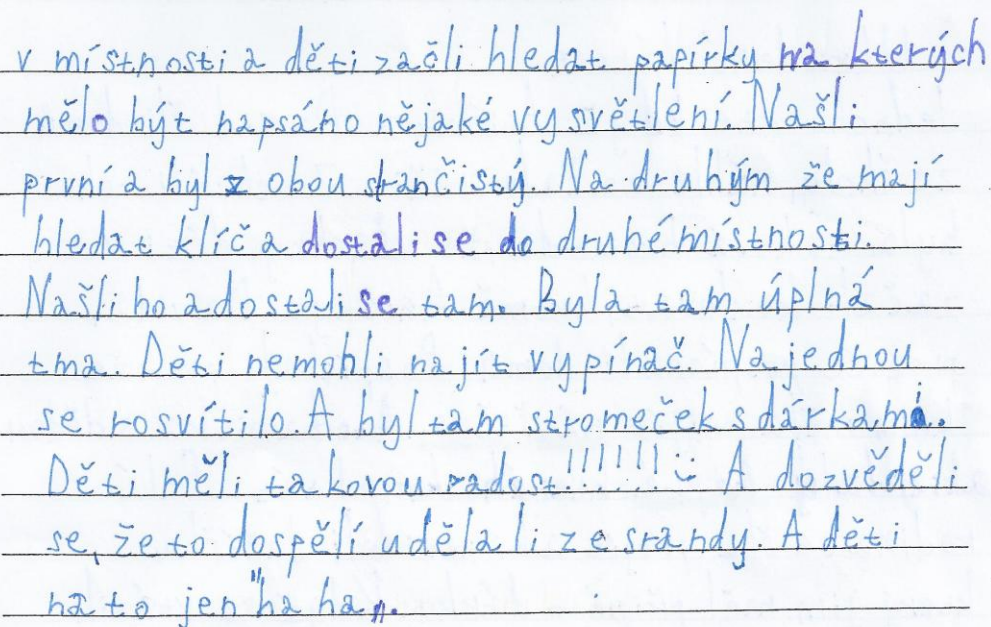 v místnosti a děti začli hledat papírky na kterých
mělo být napsáno nějaké vysvětlení. Našli
první a byl z obou stran čistý. Na druhým že mají
hledat klíč a dostali se do druhé místnosti.
Našli ho a dostali se tam. Byla tam úplná
tma. Děti nemohli najít vypínač. Najednou
se rosvítilo. A byl tam stromeček s dárkami.
Děti měli takovou radost!!!!!! :) A dozvěděli
se, že to dospělí udělali ze srandy. A děti
na to jen "ha ha„.